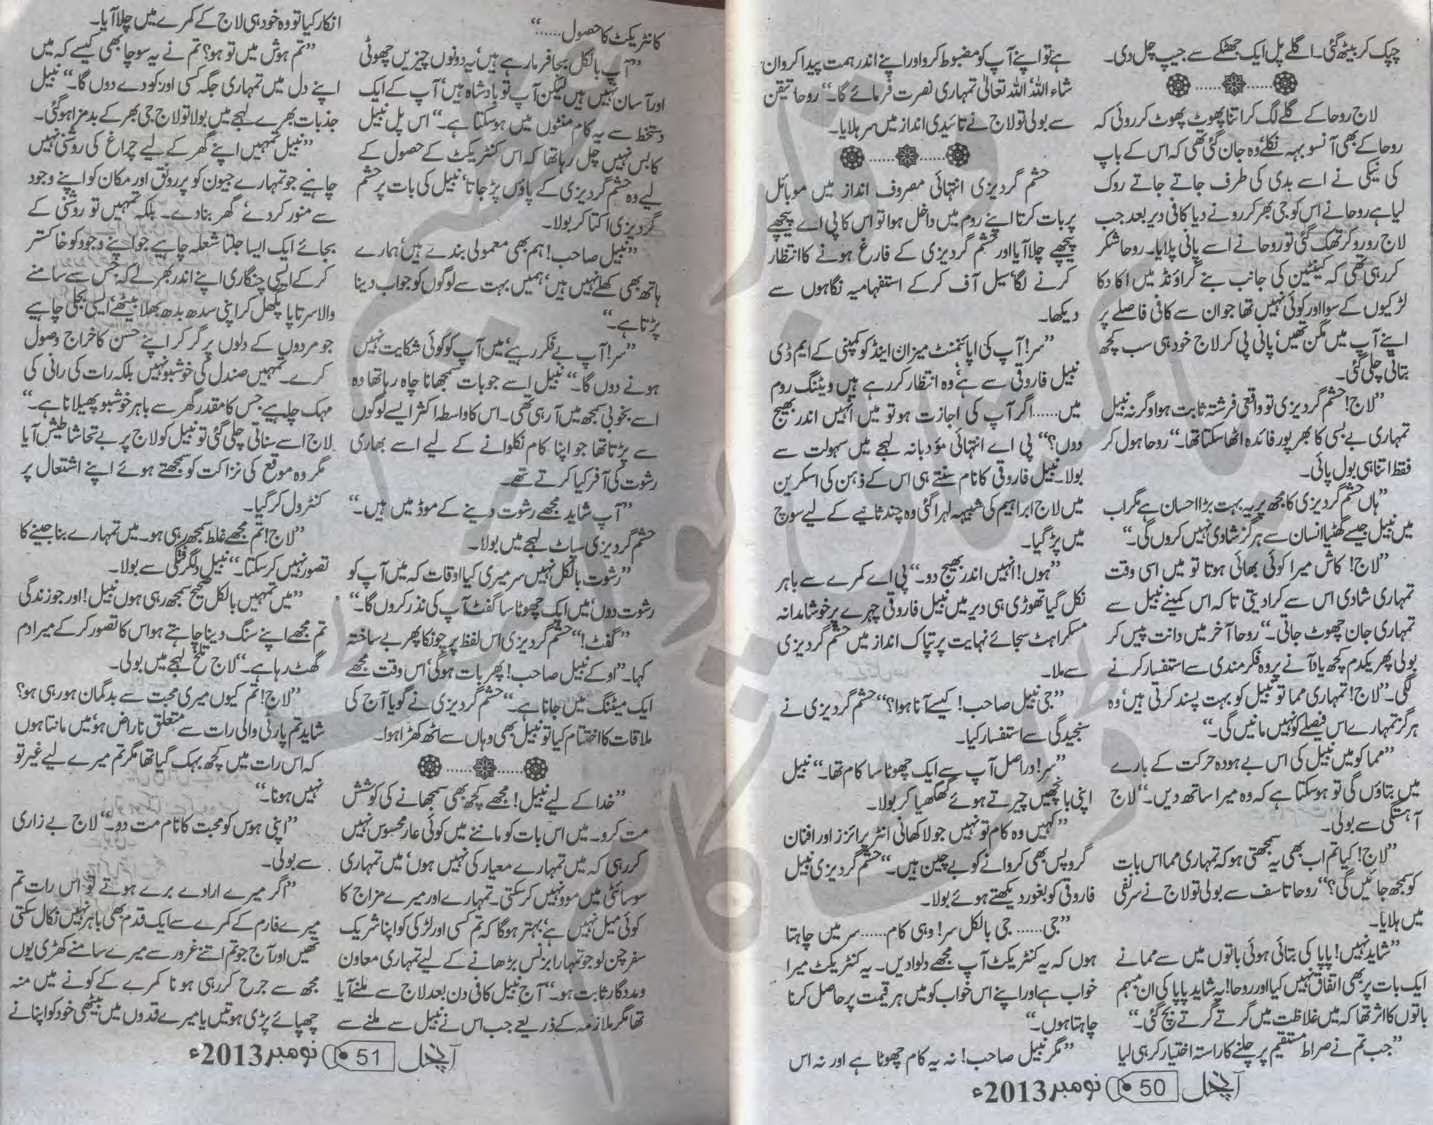 چپک کر بیٹھ گئی۔ اگلے پل ایک جھٹکے سے جیپ چل دی۔
لاج روحا کے گلے لگ کر اتنا پھوٹ پھوٹ کر روئی کہ
روحا کے بھی آنسو بہہ نکلے‘ وہ جان گئی تھی کہ اس کے باپ
کی نیکی نے اسے بدی کی طرف جاتے جاتے روک
لیا ہے روحا نے اس کو جی بھر کر رونے دیا کافی دیر بعد جب
لاج رو رو کر تھک گئی تو روحا نے اسے پانی پلایا۔ روحا شکر
کر رہی تھی کہ کینٹین کی جانب بنے گراؤنڈ میں اکا دکا
لڑکیوں کے سوا اور کوئی نہیں تھا جو ان سے کافی فاصلے پر
اپنے آپ میں مگن تھیں‘ پانی پی کر لاج خود ہی سب کچھ
بتاتی چلی گئی۔
”لاج! حشم گردیزی تو واقعی فرشتہ ثابت ہوا وگرنہ نبیل
تمہاری بے بسی کا بھرپور فائدہ اٹھا سکتا تھا۔“ روحا ہول کر
فقط اتنا ہی بول پائی۔
”ہاں حشم گردیزی کا مجھ پر یہ بہت بڑا احسان ہے مگر اب
میں نبیل جیسے گھٹیا انسان سے ہرگز شادی نہیں کروں گی۔“
”لاج! کاش میرا کوئی بھائی ہوتا تو میں اسی وقت
تمہاری شادی اس سے کرا دیتی تاکہ اس کمینے نبیل سے
تمہاری جان چھوٹ جاتی۔“ روحا آخر میں دانت پیس کر
بولی پھر یکدم کچھ یاد آنے پر وہ فکرمندی سے استفسار کرنے
لگی۔ ”لاج! تمہاری مما تو نبیل کو بہت پسند کرتی ہیں‘ وہ
ہرگز تمہارے اس فیصلے کو نہیں مانیں گی۔“
”مما کو میں نبیل کی اس بے ہودہ حرکت کے بارے
میں بتاؤں گی تو ہو سکتا ہے کہ وہ میرا ساتھ دیں۔“ لاج
آہستگی سے بولی۔
”لاج! کیا تم اب بھی یہ سمجھتی ہو کہ تمہاری مما اس بات
کو سمجھ جائیں گی؟“ روحا تاسف سے بولی تو لاج نے سر نفی
میں ہلایا۔
”شاید نہیں! پاپا کی بتائی ہوئی باتوں میں سے مما نے
ایک بات پر بھی اتفاق نہیں کیا اور روحا! یہ شاید پاپا کی ان مبہم
باتوں کا اثر تھا کہ میں غلاظت میں گرتے گرتے بچ گئی۔“
”جب تم نے صراط مستقیم پر چلنے کا راستہ اختیار کر ہی لیا
ہے تو اپنے آپ کو مضبوط کرو اور اپنے اندر ہمت پیدا کرو ان
شاء اللہ اللہ تعالیٰ تمہاری نصرت فرمائے گا۔“ روحا یقین
سے بولی تو لاج نے تائیدی انداز میں سر ہلایا۔
حشم گردیزی انتہائی مصروف انداز میں موبائل
پر بات کرتا اپنے روم میں داخل ہوا تو اس کا پی اے پیچھے
پیچھے چلا آیا اور حشم گردیزی کے فارغ ہونے کا انتظار
کرنے لگا‘ سیل آف کر کے استفہامیہ نگاہوں سے
دیکھا۔
”سر! آپ کی اپائنمنٹ میزان اینڈ کو کمپنی کے ایم ڈی
نبیل فاروقی سے ہے‘ وہ انتظار کر رہے ہیں ویٹنگ روم
میں..... اگر آپ کی اجازت ہو تو میں انہیں اندر بھیج
دوں؟“ پی اے انتہائی مؤدبانہ لہجے میں سہولت سے
بولا۔ نبیل فاروقی کا نام سنتے ہی اس کے ذہن کی اسکرین
میں لاج ابراہیم کی شبیہہ لہرا گئی وہ چند ثانیے کے لیے سوچ
میں پڑ گیا۔
”ہوں! انہیں اندر بھیج دو۔“ پی اے کمرے سے باہر
نکل گیا تھوڑی ہی دیر میں نبیل فاروقی چہرے پر خوشامدانہ
مسکراہٹ سجائے نہایت پر تپاک انداز میں حشم گردیزی
سے ملا۔
”جی نبیل صاحب! کیسے آنا ہوا؟“ حشم گردیزی نے
سنجیدگی سے استفسار کیا۔
”سر! دراصل آپ سے ایک چھوٹا سا کام تھا۔“ نبیل
اپنی باچھیں چیرتے ہوئے گھگھیا کر بولا۔
”کہیں وہ کام تو نہیں جو لاکھانی انٹرپرائزز اور افنان
گروپس بھی کروانے کو بے چین ہیں۔“ حشم گردیزی نبیل
فاروقی کو بغور دیکھتے ہوئے بولا۔
”جی..... جی بالکل سر! وہی کام..... سر میں چاہتا
ہوں کہ یہ کنٹریکٹ آپ مجھے دلوا دیں۔ یہ کنٹریکٹ میرا
خواب ہے اور اپنے اس خواب کو میں ہر قیمت پر حاصل کرنا
چاہتا ہوں۔“
”مگر نبیل صاحب! نہ یہ کام چھوٹا ہے اور نہ اس
آنچل 50 نومبر 2013ء
کانٹریکٹ کا حصول......“
”آپ بالکل بجا فرما رہے ہیں‘ یہ دونوں چیزیں چھوٹی
اور آسان نہیں ہیں لیکن آپ تو بادشاہ ہیں‘ آپ کے ایک
دستخط سے یہ کام منٹوں میں ہو سکتا ہے۔“ اس پل نبیل
کا بس نہیں چل رہا تھا کہ اس کنٹریکٹ کے حصول کے
لیے وہ حشم گردیزی کے پاؤں پڑ جاتا‘ نبیل کی بات پر حشم
گردیزی اکتا کر بولا۔
”نبیل صاحب! ہم بھی معمولی بندے ہیں‘ ہمارے
ہاتھ بھی کھلے نہیں ہیں‘ ہمیں بہت سے لوگوں کو جواب دینا
پڑتا ہے۔“
”سر! آپ بے فکر رہیے‘ میں آپ کو کوئی شکایت نہیں
ہونے دوں گا۔“ نبیل اسے جو بات سمجھانا چاہ رہا تھا وہ
اسے بخوبی سمجھ میں آ رہی تھی۔ اس کا واسطہ اکثر ایسے لوگوں
سے پڑتا تھا جو اپنا کام نکلوانے کے لیے اسے بھاری
رشوت کی آفر کیا کرتے تھے۔
”آپ شاید مجھے رشوت دینے کے موڈ میں ہیں۔“
حشم گردیزی سپاٹ لہجے میں بولا۔
”رشوت بالکل نہیں سر میری کیا اوقات کہ میں آپ کو
رشوت دوں‘ میں ایک چھوٹا سا گفٹ آپ کی نذر کروں گا۔“
”گفٹ!“ حشم گردیزی اس لفظ پر چونکا پھر بے ساختہ
کہا۔ ”اوکے نبیل صاحب! پھر بات ہو گی‘ اس وقت مجھے
ایک میٹنگ میں جانا ہے۔“ حشم گردیزی نے گویا آج کی
ملاقات کا اختتام کیا تو نبیل بھی وہاں سے اٹھ کھڑا ہوا۔
”خدا کے لیے نبیل! مجھے کچھ بھی سمجھانے کی کوشش
مت کرو۔ میں اس بات کو ماننے میں کوئی عار محسوس نہیں
کر رہی کہ میں تمہارے معیار کی نہیں ہوں‘ میں تمہاری
سوسائٹی میں موو نہیں کر سکتی۔ تمہارے اور میرے مزاج کا
کوئی میل نہیں ہے‘ بہتر ہو گا کہ تم کسی اور لڑکی کو اپنا شریک
سفر چن لو جو تمہارا بزنس بڑھانے کے لیے تمہاری معاون
و مددگار ثابت ہو۔“ آج نبیل کافی دن بعد لاج سے ملنے آیا
تھا مگر ملازمہ کے ذریعے جب اس نے نبیل سے ملنے سے
انکار کیا تو وہ خود ہی لاج کے کمرے میں چلا آیا۔
”تم ہوش میں تو ہو؟ تم نے یہ سوچا بھی کیسے کہ میں
اپنے دل میں تمہاری جگہ کسی اور کو دے دوں گا۔“ نبیل
جذبات بھرے لہجے میں بولا تو لاج جی بھر کے بدمزا ہوئی۔
”نبیل تمہیں اپنے گھر کے لیے چراغ کی روشنی نہیں
چاہیے جو تمہارے جیون کو پر رونق اور مکان کو اپنے وجود
سے منور کر دے‘ گھر بنا دے۔ بلکہ تمہیں تو روشنی کے
بجائے ایک ایسا جلتا شعلہ چاہیے جو اپنے وجود کو خاکستر
کر کے ایسی چنگاری اپنے اندر بھر لے کہ جس سے سامنے
والا سرتاپا پگھل کر اپنی سدھ بدھ بھلا بیٹھے‘ ایسی بجلی چاہیے
جو مردوں کے دلوں پر گر کر اپنے حسن کا خراج وصول
کرے۔ تمہیں صندل کی خوشبو نہیں بلکہ رات کی رانی کی
مہک چاہیے جس کا مقدر گھر سے باہر خوشبو پھیلانا ہے۔“
لاج اسے سناتی چلی گئی تو نبیل کو لاج پر بے تحاشا طیش آیا
مگر وہ موقع کی نزاکت کو سمجھتے ہوئے اپنے اشتعال پر
کنٹرول کر گیا۔
”لاج! تم مجھے غلط سمجھ رہی ہو۔ میں تمہارے بنا جینے کا
تصور نہیں کر سکتا۔“ نبیل دلگرفتگی سے بولا۔
”میں تمہیں بالکل صحیح سمجھ رہی ہوں نبیل! اور جو زندگی
تم مجھے اپنے سنگ دینا چاہتے ہو اس کا تصور کر کے میرا دم
گھٹ رہا ہے۔“ لاج تلخ لہجے میں بولی۔
”لاج! تم کیوں میری محبت سے بدگمان ہو رہی ہو؟
شاید تم پارٹی والی رات سے متعلق ناراض ہو‘ میں مانتا ہوں
کہ اس رات میں کچھ بہک گیا تھا مگر تم میرے لیے غیر تو
نہیں ہو نا۔“
”اپنی ہوس کو محبت کا نام مت دو۔“ لاج بے زاری
سے بولی۔
”اگر میرے ارادے برے ہوتے تو اس رات تم
میرے فارم کے کمرے سے ایک قدم بھی باہر نہیں نکال سکتی
تھیں اور آج جو تم اتنے غرور سے میرے سامنے کھڑی یوں
مجھ سے جرح کر رہی ہو نا کمرے کے کونے میں منہ
چھپائے پڑی ہوتیں یا میرے قدموں میں بیٹھی خود کو اپنانے
آنچل 51 نومبر 2013ء